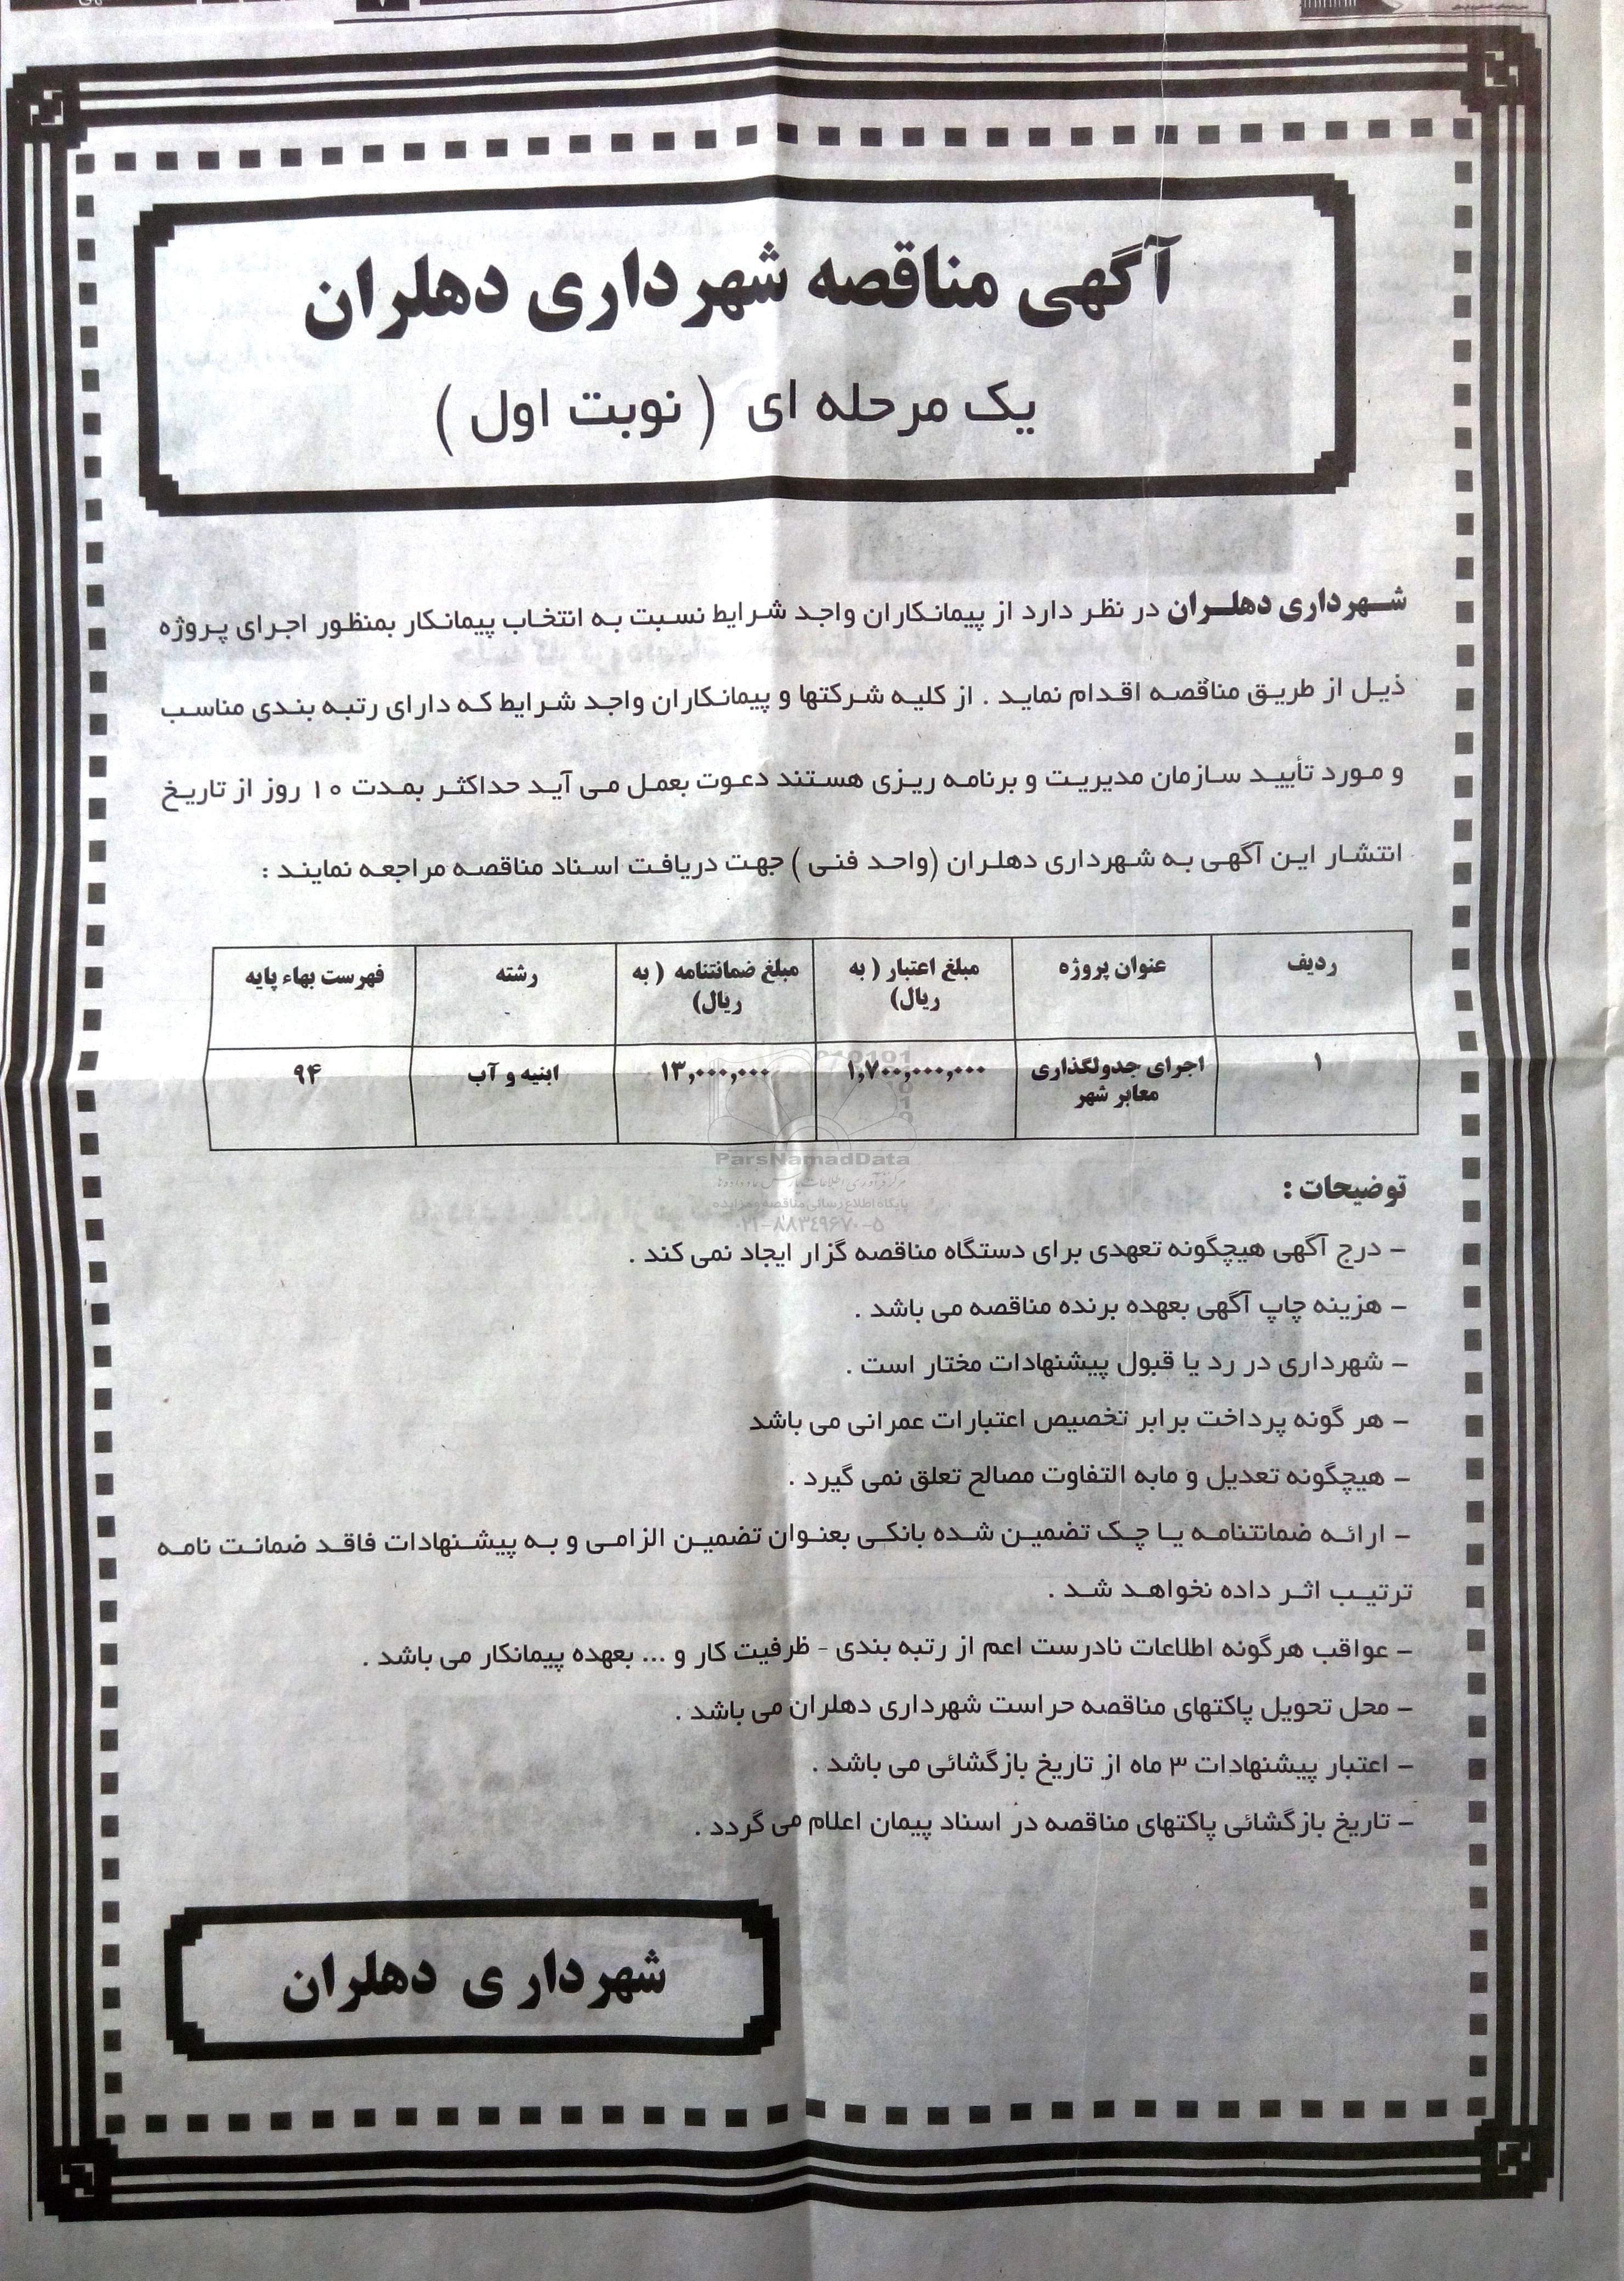 آگهی مناقصه شهرداری دهلران
یک مرحله ای ( نوبت اول )
شهرداری دهلران در نظر دارد از پیمانکاران واجد شرایط نسبت به انتخاب پیمانکار بمنظور اجرای پروژه
ذیل از طریق مناقصه اقدام نماید . از کلیه شرکتها و پیمانکاران واجد شرایط که دارای رتبه بندی مناسب
و مورد تأیید سازمان مدیریت و برنامه ریزی هستند دعوت بعمل می آید حداکثر بمدت ۱۰ روز از تاریخ
انتشار این آگهی به شهرداری دهلران (واحد فنی) جهت دریافت اسناد مناقصه مراجعه نمایند :
ردیف عنوان پروژه مبلغ اعتبار ( به ریال) مبلغ ضمانتنامه ( به ریال) رشته فهرست بهاء پایه
۱ اجرای جدولگذاری معابر شهر ۱,۷۰۰,۰۰۰,۰۰۰ ۱۳,۰۰۰,۰۰۰ ابنیه و آب ۹۴
ParsNamadData
پایگاه اطلاع رسانی مناقصه و مزایده
۰۲۱-۸۸۳۴۹۶۷۰-۵
توضیحات :
– درج آگهی هیچگونه تعهدی برای دستگاه مناقصه گزار ایجاد نمی کند .
– هزینه چاپ آگهی بعهده برنده مناقصه می باشد .
– شهرداری در رد یا قبول پیشنهادات مختار است .
– هر گونه پرداخت برابر تخصیص اعتبارات عمرانی می باشد
– هیچگونه تعدیل و مابه التفاوت مصالح تعلق نمی گیرد .
– ارائه ضمانتنامه یا چک تضمین شده بانکی بعنوان تضمین الزامی و به پیشنهادات فاقد ضمانت نامه
ترتیب اثر داده نخواهد شد .
– عواقب هرگونه اطلاعات نادرست اعم از رتبه بندی - ظرفیت کار و ... بعهده پیمانکار می باشد .
– محل تحویل پاکتهای مناقصه حراست شهرداری دهلران می باشد .
– اعتبار پیشنهادات ۳ ماه از تاریخ بازگشائی می باشد .
– تاریخ بازگشائی پاکتهای مناقصه در اسناد پیمان اعلام می گردد .
شهرداری دهلران